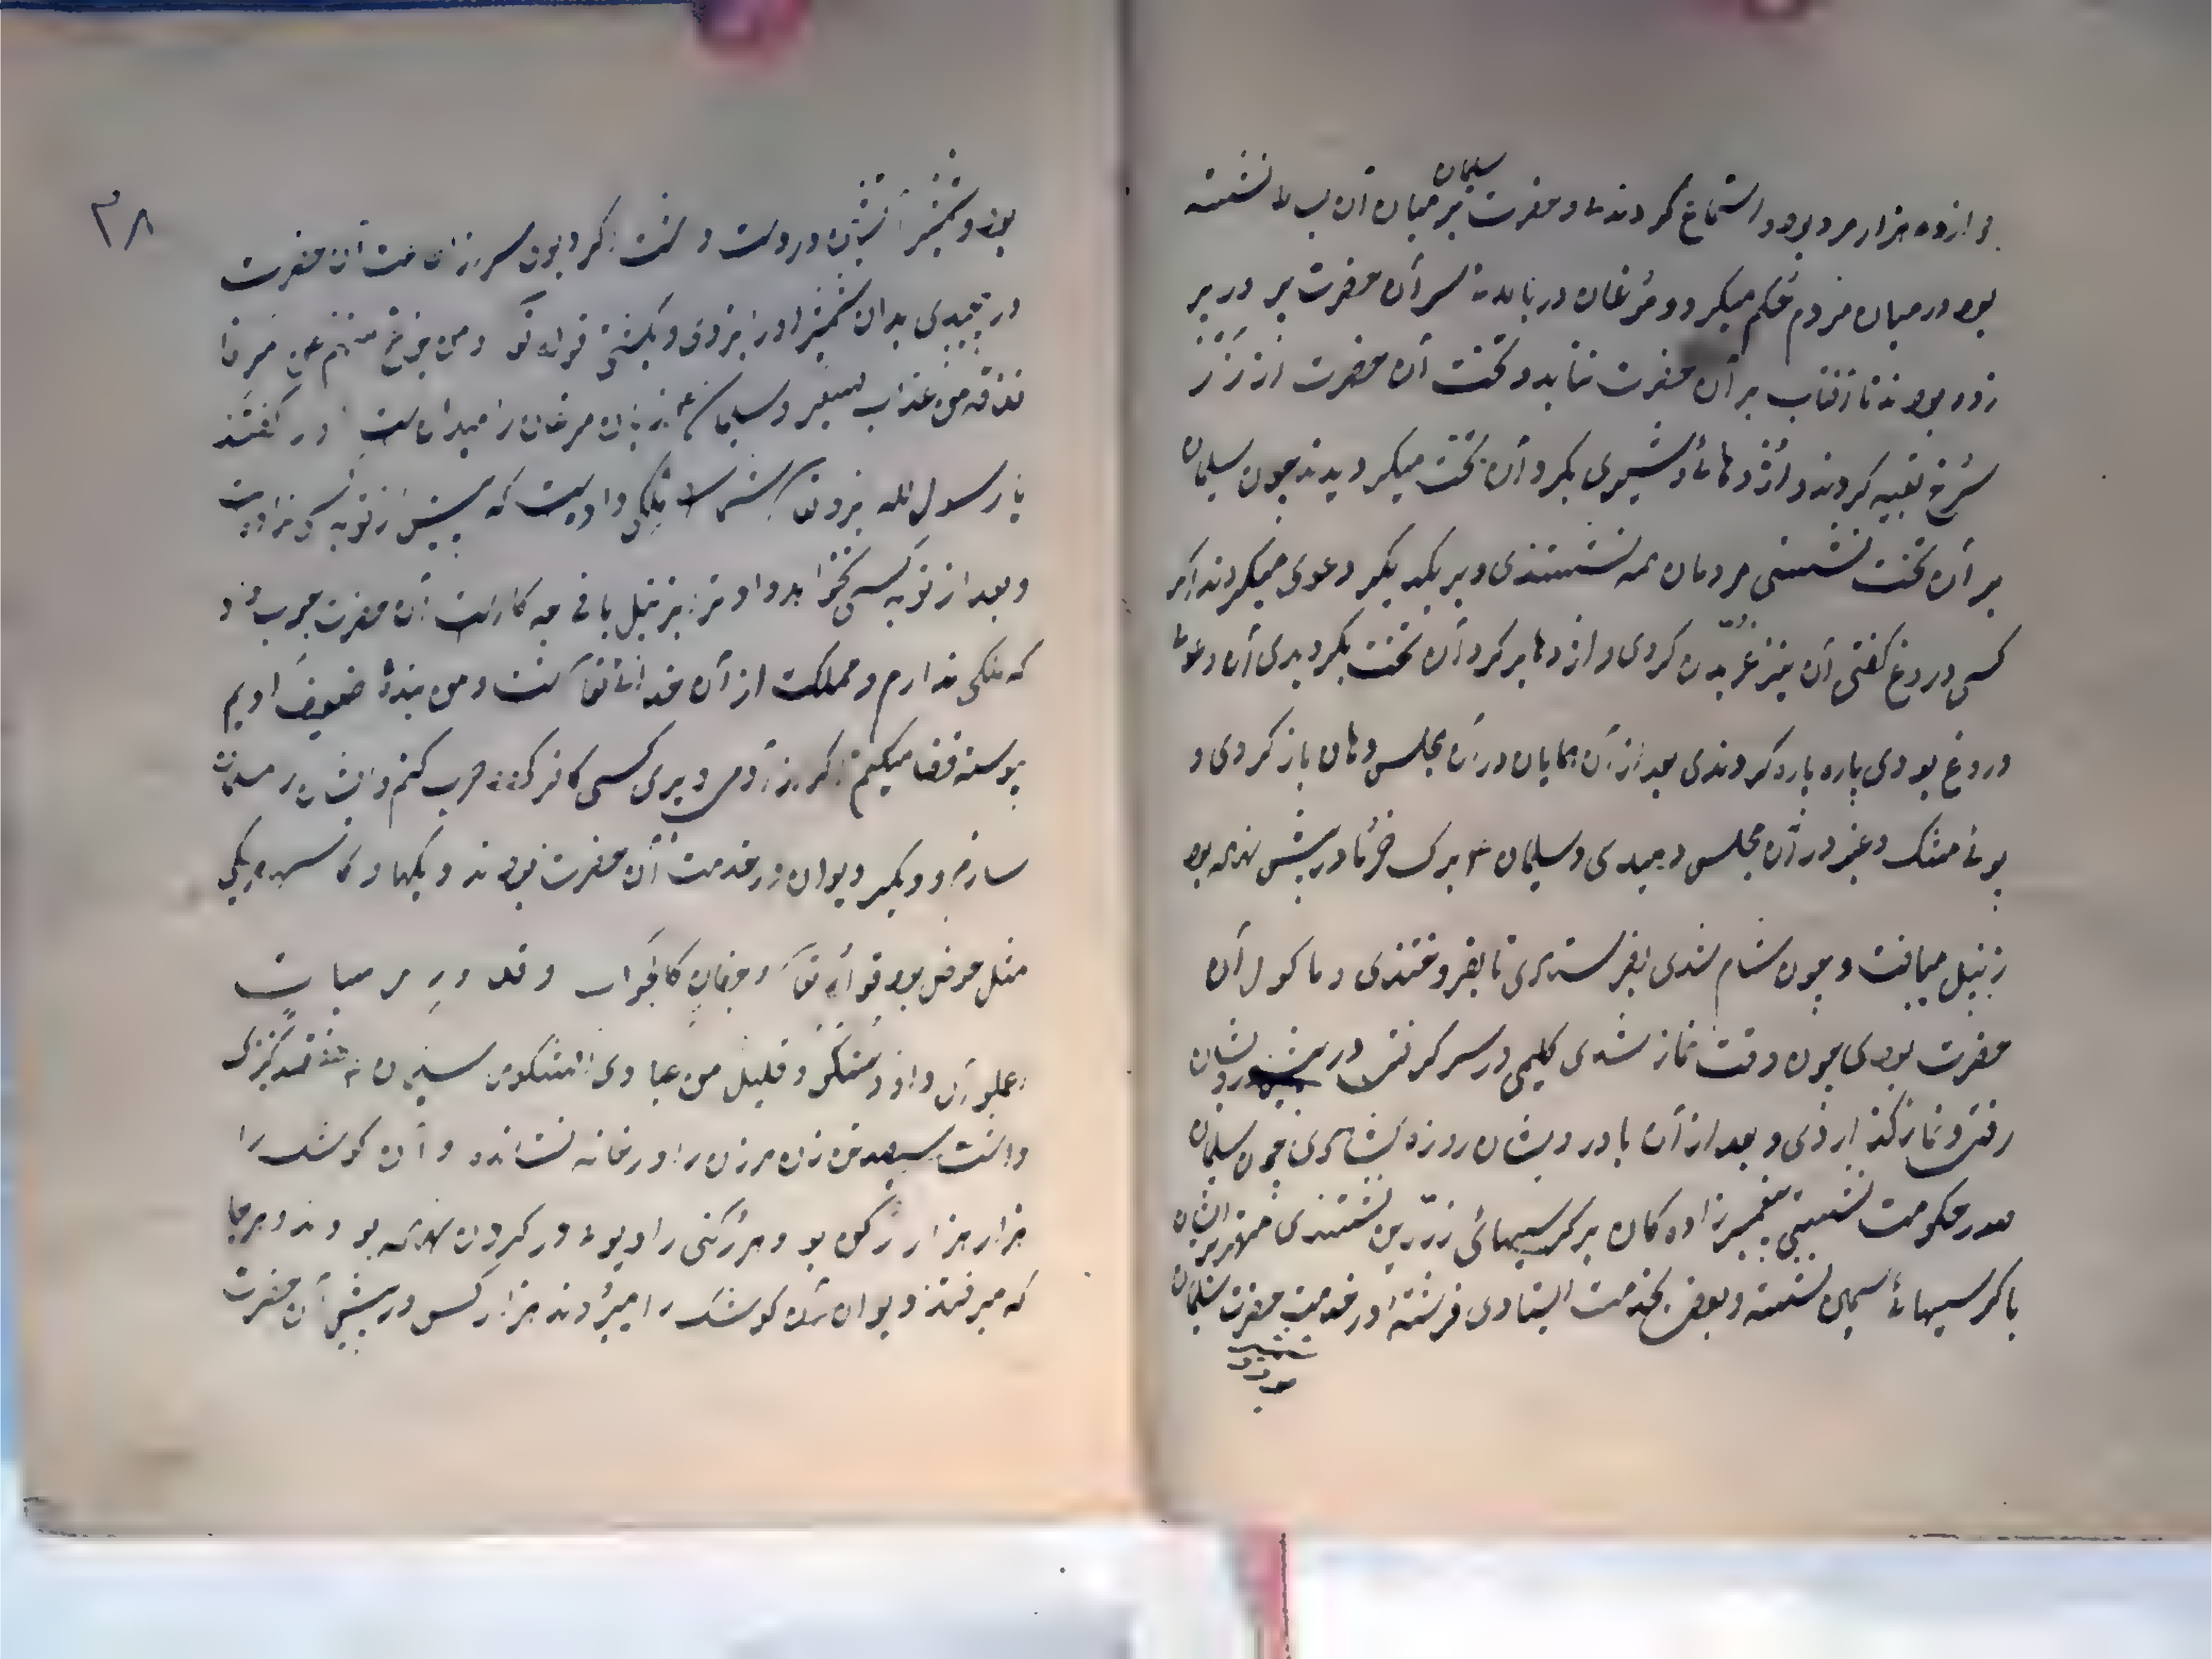 دوازده هزار مرد بود و استماع کردندی و حضرت سلیمان بر میان آن بساط نشسته
بود در میان مردم حکم میکرد و مرغان در بالای سر آن حضرت پر در پر
زده بودند تا آفتاب بر آن حضرت نتابد و تخت آن حضرت از زر
سرخ تعبیه کردند و اژدهائی و شیری بگرد آن تخت میگردیدند چون سلیمان
بر آن تخت نشستی مردمان همه نشستندی و بر یکدیگر دعوی میکردند اگر
کسی دروغ گفتی آن شیر غریدن کردی و اژدها بر گرد آن تخت بگردیدی آن دعوی
دروغ بودی پاره پاره کردندی بعد از آن همایان در آن مجلس دهان باز کردی و
بوئی مشک و عنبر در آن مجلس دمیدی و سلیمان ع برگ خرما در پیش نهاده بود
زنبیل میبافت و چون شام شدی بفرستادی تا بفروختندی و ماکول آن
حضرت بودی چون وقت نماز شدی گلیمی در سر گرفتی و در پیش درویشان
رفتی و نماز گذاردی و بعد از آن با درویشان روزه بگشادی چون سلیمان
در حکومت نشستی پیغمبر زادگان بر کرسیهائی زرین نشستندی مهتر پریان
با کرسیهائی سیمین نشسته و بعضی بخدمت ایستادی فرشته در خدمت حضرت سلیمان
بود و شمشیر
۳۸
بود و شمشیر آتشین در دست داشت اگر دیوی سر از خدمت آن حضرت
در پیچیدی بدان شمشیر او را بزدی و بکشتی قوله تع و من یزغ منهم عن امرنا
نذقه من عذاب السعیر و سلیمان ع زبان مرغان را میدانست او را گفتند
یا رسول الله خداوند تعالی شما را ملکی داده است که پیش از تو به کسی نداده است
و بعد از تو به کسی نخواهد داد ترا به زنبیل بافی چه کار است آن حضرت جواب داد
که ملکی ندارم و مملکت از آن خدائی تعالی است و من بنده ضعیف اویم
پیوسته قضا میکنم اگر از آدمی و پری کسی کافر گردد حرب کنم و ایشان را مسلمان
سازم و دیگر دیوان در خدمت آن حضرت بودند و دیگها و کاسها هر یکی
مثل حوض بود قوله تعالی و جفان کالجواب و قدور راسیات
اعملو آل داود شکرا و قلیل من عبادی الشکور سلیمان ع هفتصد کنیزک
داشت سیصد زن هر زن را در خانه نشانده و آن کوشک را
هزار هزار رکن بود و هر رکنی را دیوی در گردن نهاده بودند و هر جا
که میرفتند دیوان آن کوشک را میبردند هزار کس در پیش آن حضرت